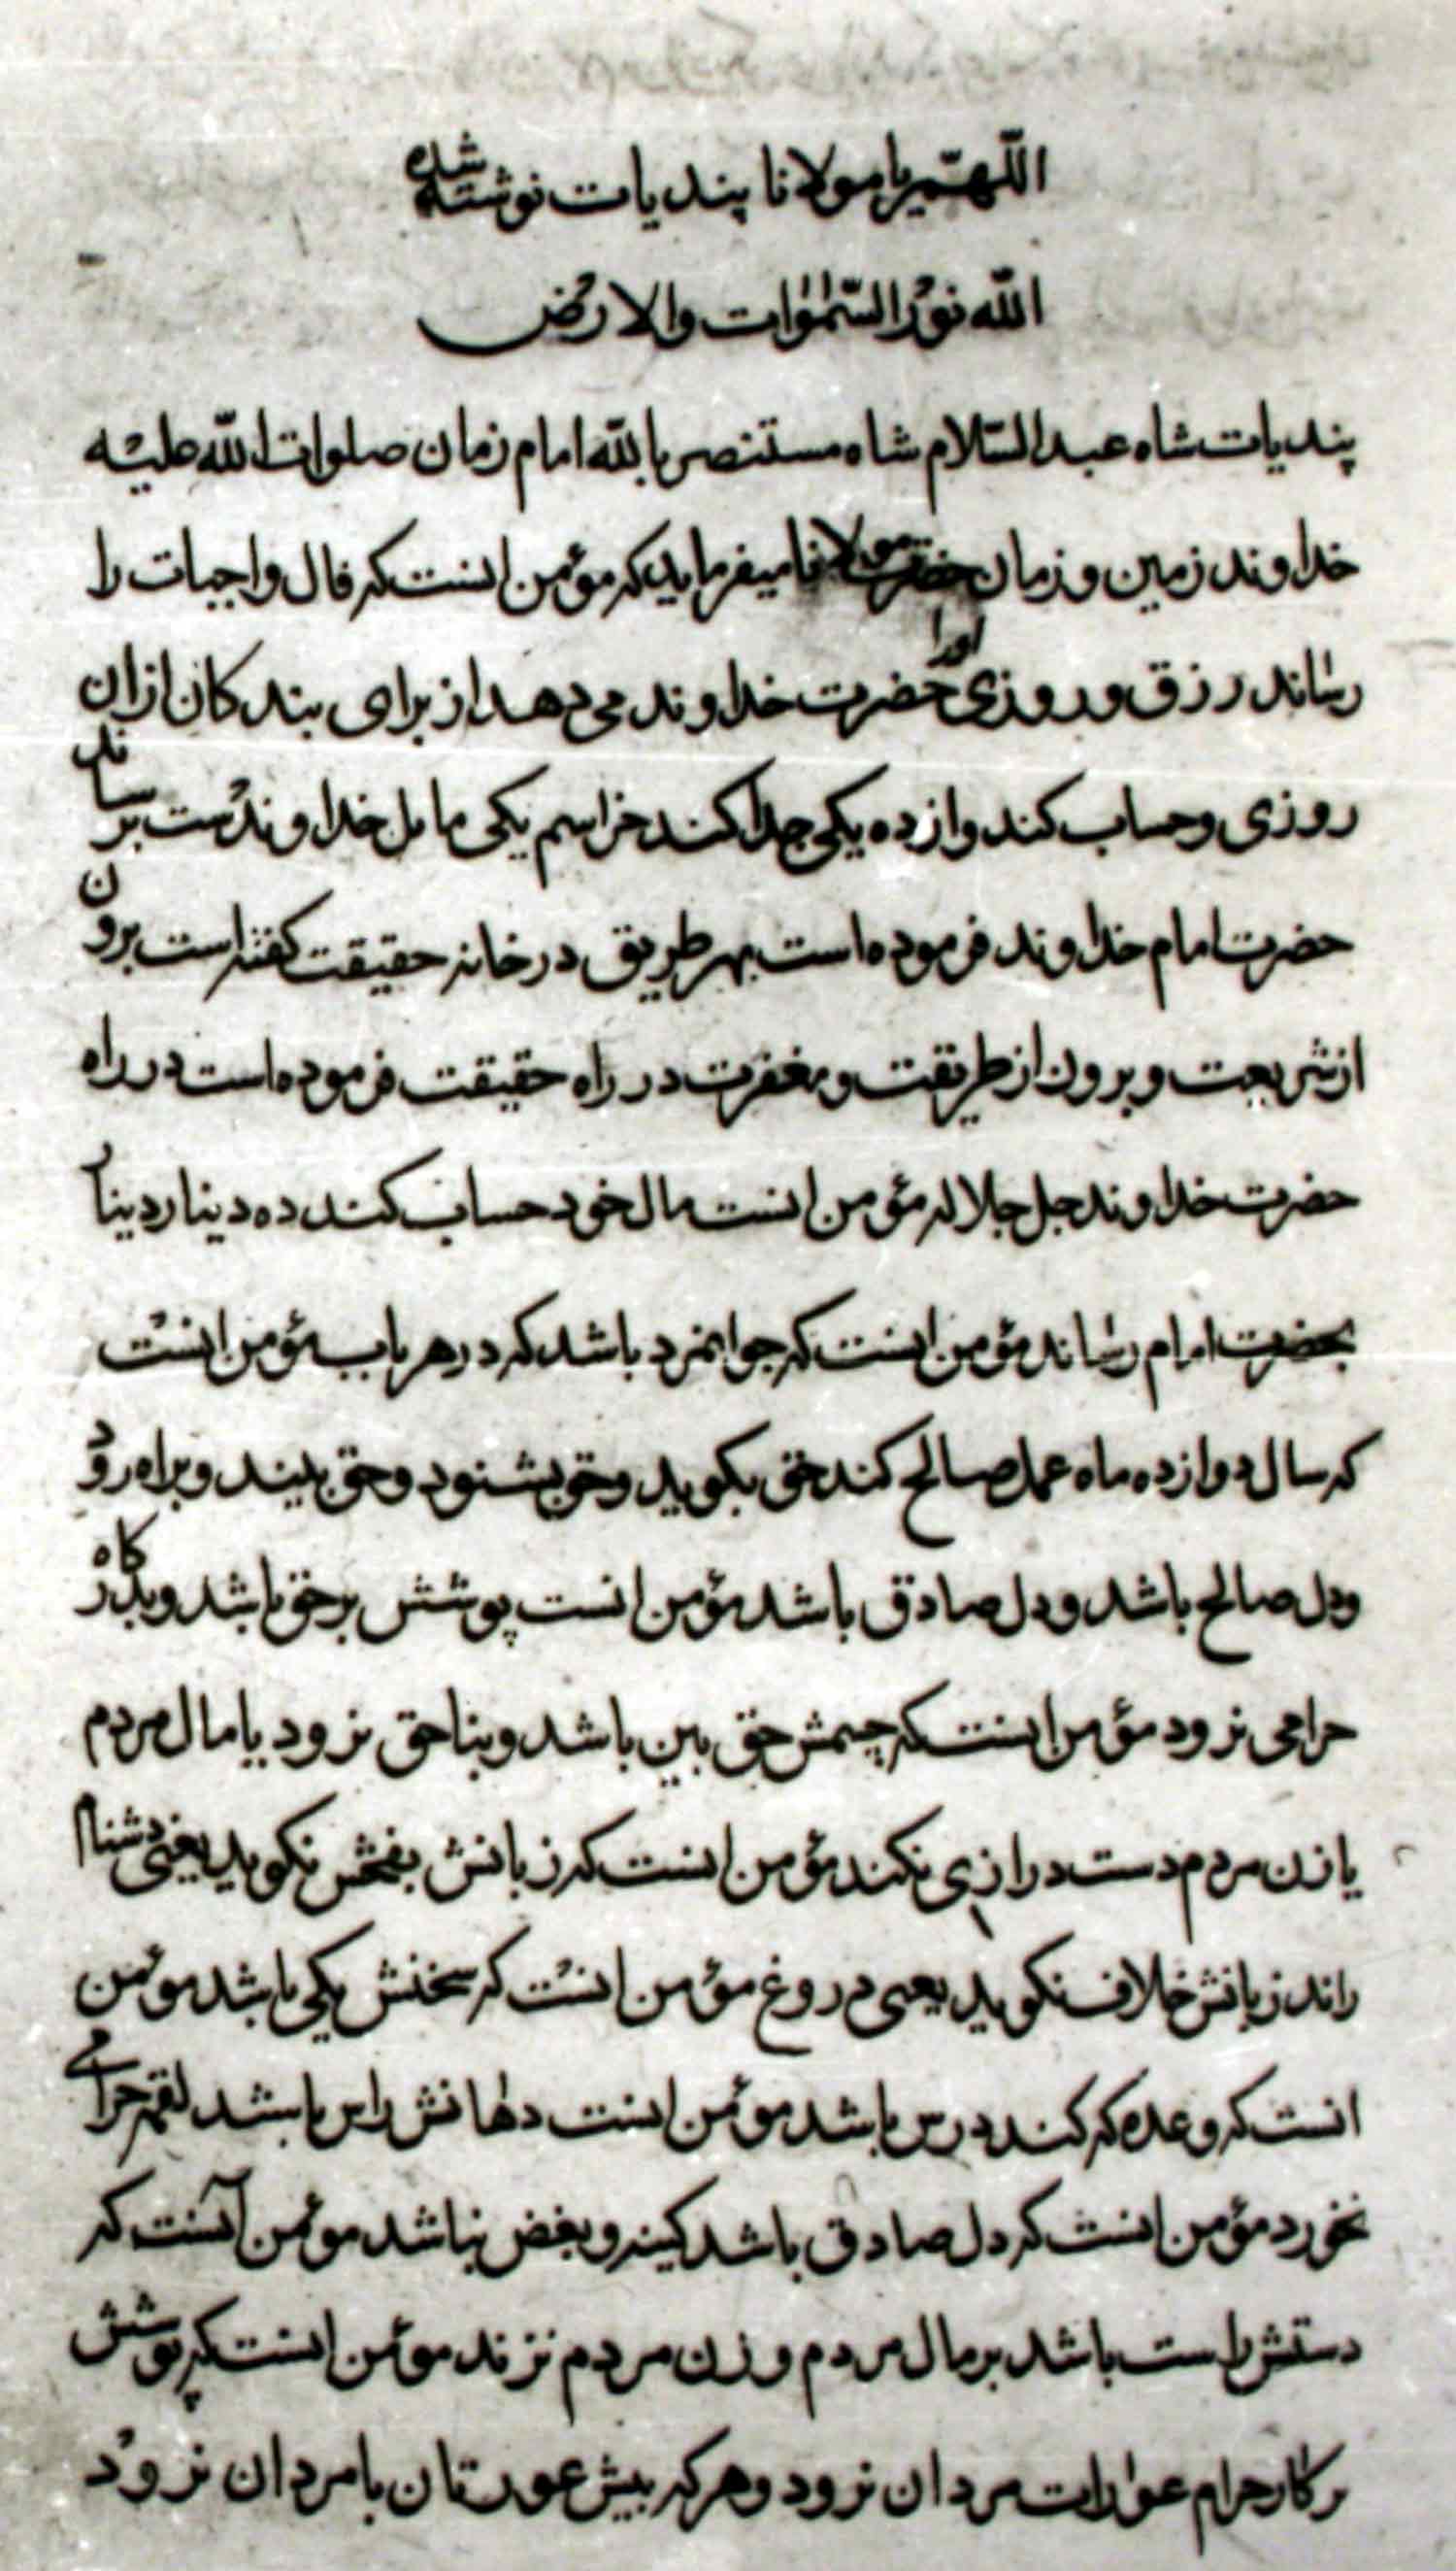 اللّهمّ يا مولانا پنديات نوشته شده
الله نوْر السّمٰوٰات والارْض
پنديات شاه عبدالسّلام شاه مستنصر بالله امام زمان صلوات الله عليْه
خداوند زمين و زمان حضرت مولانا ميفرمايد كه موئمن انست كه مال واجبات را
رساند رزق و روزى اورا حضرت خداوند مى دهد از براى بندكان ازان
روزى و حساب كند و از ده يكى جدا كند خراسم يكى مال خداوندست برساند
حضرت امام خداوند فرموده است بهر طريق در خانه حقيقت كفته است برون
از شريعت و برون از طريقت و مغفرت در راه حقيقت فرموده است در راه
حضرت خداوند جل جلاله مؤمن انست مال خود حساب كند ده دينار دينار
بحضرت امام رساند مؤمن انست كه جوانمرد باشد كه در هر باب مؤمن انست
كه سال دوازده ماه عمل صالح كند حق بكويد و حق بشنود و حق بيند و براه رود
ودل صالح باشد ودل صادق باشد مؤمن انست پوشش بر حق باشد و بدكاره
حرامى نرود مؤمن انست كه چشمش حق بين باشد و بناحق نرود يا مال مردم
يا زن مردم دست درازى نكند مؤمن انست كه زبانش بفحش نكويد يعنى دشنام
راند زبانش خلاف نكويد يعنى دروغ مؤمن انست كه سخنش يكى باشد موئمن
انست كه وعده كه كند درس باشد موئمن انست دهانش راس باشد لقمه حرامى
نخورد مؤمن انست كه دل صادق باشد كينه و بغض نباشد موئمن آنست كه
دستش راست باشد بر مال مردم و زن مردم نزند موئمن انست كه پوشش
بر كار حرام عوٰرات مردان نرود و هركه بيش عورتان با مردان نروْد